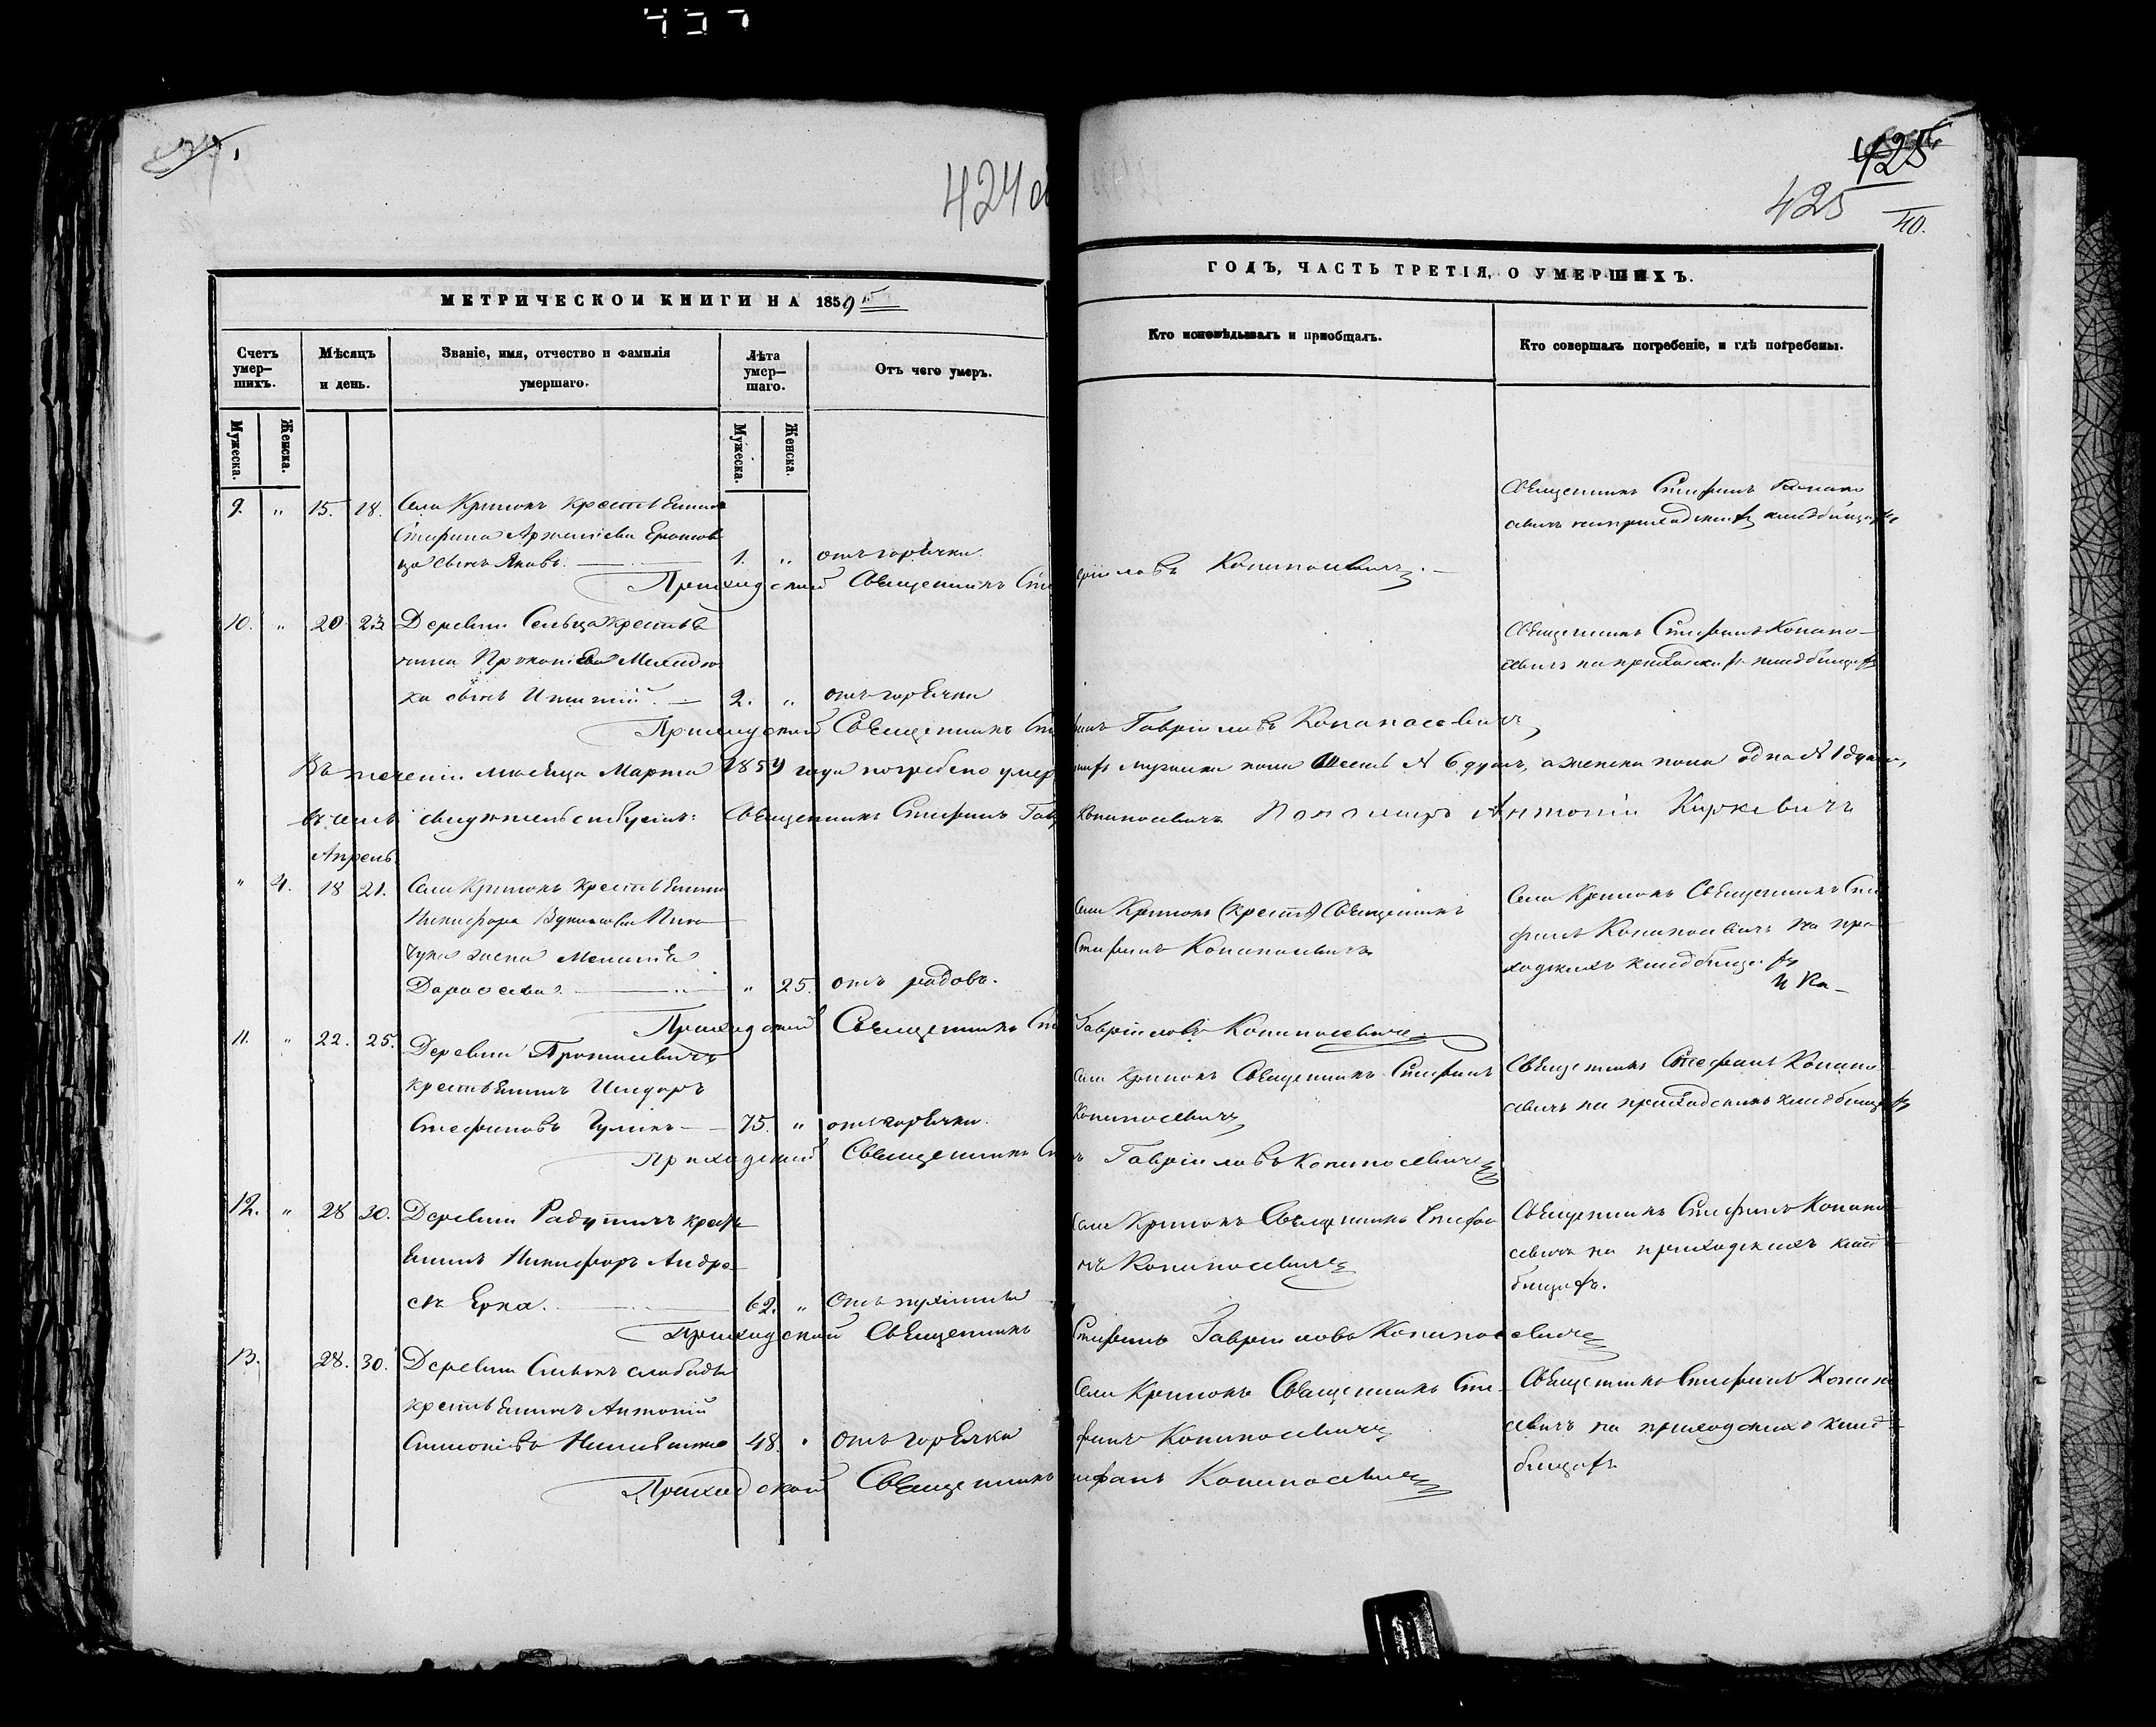 424 об
425
425
40.
МЕТРИЧЕСКОЙ КНИГИ НА 1859
ГОДЪ, ЧАСТЬ ТРЕТІЯ, О УМЕРШИХЪ.
Счетъ умер-шихъ.
Мѣсяцъ и день.
Званіе, имя, отчество и фамилія умершаго.
Лѣта умер-шаго.
Отъ чего умеръ.
Кто исповѣдывалъ и пріобщалъ.
Кто совершалъ погребеніе, и гдѣ погребены.
Мужеска.
Женска.
Мужеска.
Женска.
9. " 15. 18. Села Кримокъ крестьянина
Стефана
сынъ Яковъ. 1. " отъ горячки.
Священникъ Стефанъ Копано
севичъ на приходскихъ кладбищахъ
Приходский Священникъ Копаносевичъ.
10. " 20 23 Деревни Сельца крестья
нина Прокопіева
ка сынъ Игнатій. 2. " отъ горячки
Священникъ Стефанъ Копано-
севичъ на приходскихъ кладбищахъ
Приходский Священникъ Гавріиловъ Копаносевичъ
Въ теченіи мѣсяца Марта 1859 года погребено умер шихъ мужеска пола шесть № 6 душъ, а женска пола одна № 1 душа,
въ чемъ Священникъ Стефанъ Копаносевичъ Пономарь Антоній Киркевичъ
Апрель.
" 4. 18 21. Села Кримокъ крестьянина
Никифора
жена Меланія
" 25. отъ родовъ.
Села Кримокъ Священникъ
Стефанъ Копаносевичъ
Села Кримокъ Священникъ Сте
фанъ Копаносевичъ на при
ходскихъ кладбищахъ
Приходский Священникъ Гавріиловъ Копаносевичъ
11. " 22. 25. Деревни
крестьянинъ Исидоръ
Стефановъ 75. " отъ горячки.
Села Кримокъ Священникъ Стефанъ
Копаносевичъ
Священникъ Стефанъ Копано
севичъ на приходскихъ кладбищахъ
Приходский Священникъ Гавріиловъ Копаносевичъ
12. " 28 30. Деревни крестья
нинъ Никифоръ Андре
евъ Ерка. 62. "
Села Кримокъ Священникъ Стефа
нъ Копаносевичъ
Священникъ Стефанъ Копано
севичъ на приходскихъ клад
бищахъ.
Приходский Священникъ Стефанъ Гавріиловъ Копаносевичъ
13. 28. 30. Деревни слободы
крестьянинъ Антоній
48. " отъ горячки
Села Кримокъ Священникъ Сте-
фанъ Копаносевичъ
Священникъ Стефанъ Копано
севичъ на приходскихъ клад
бищахъ
Приходской Священникъ Копаносевичъ